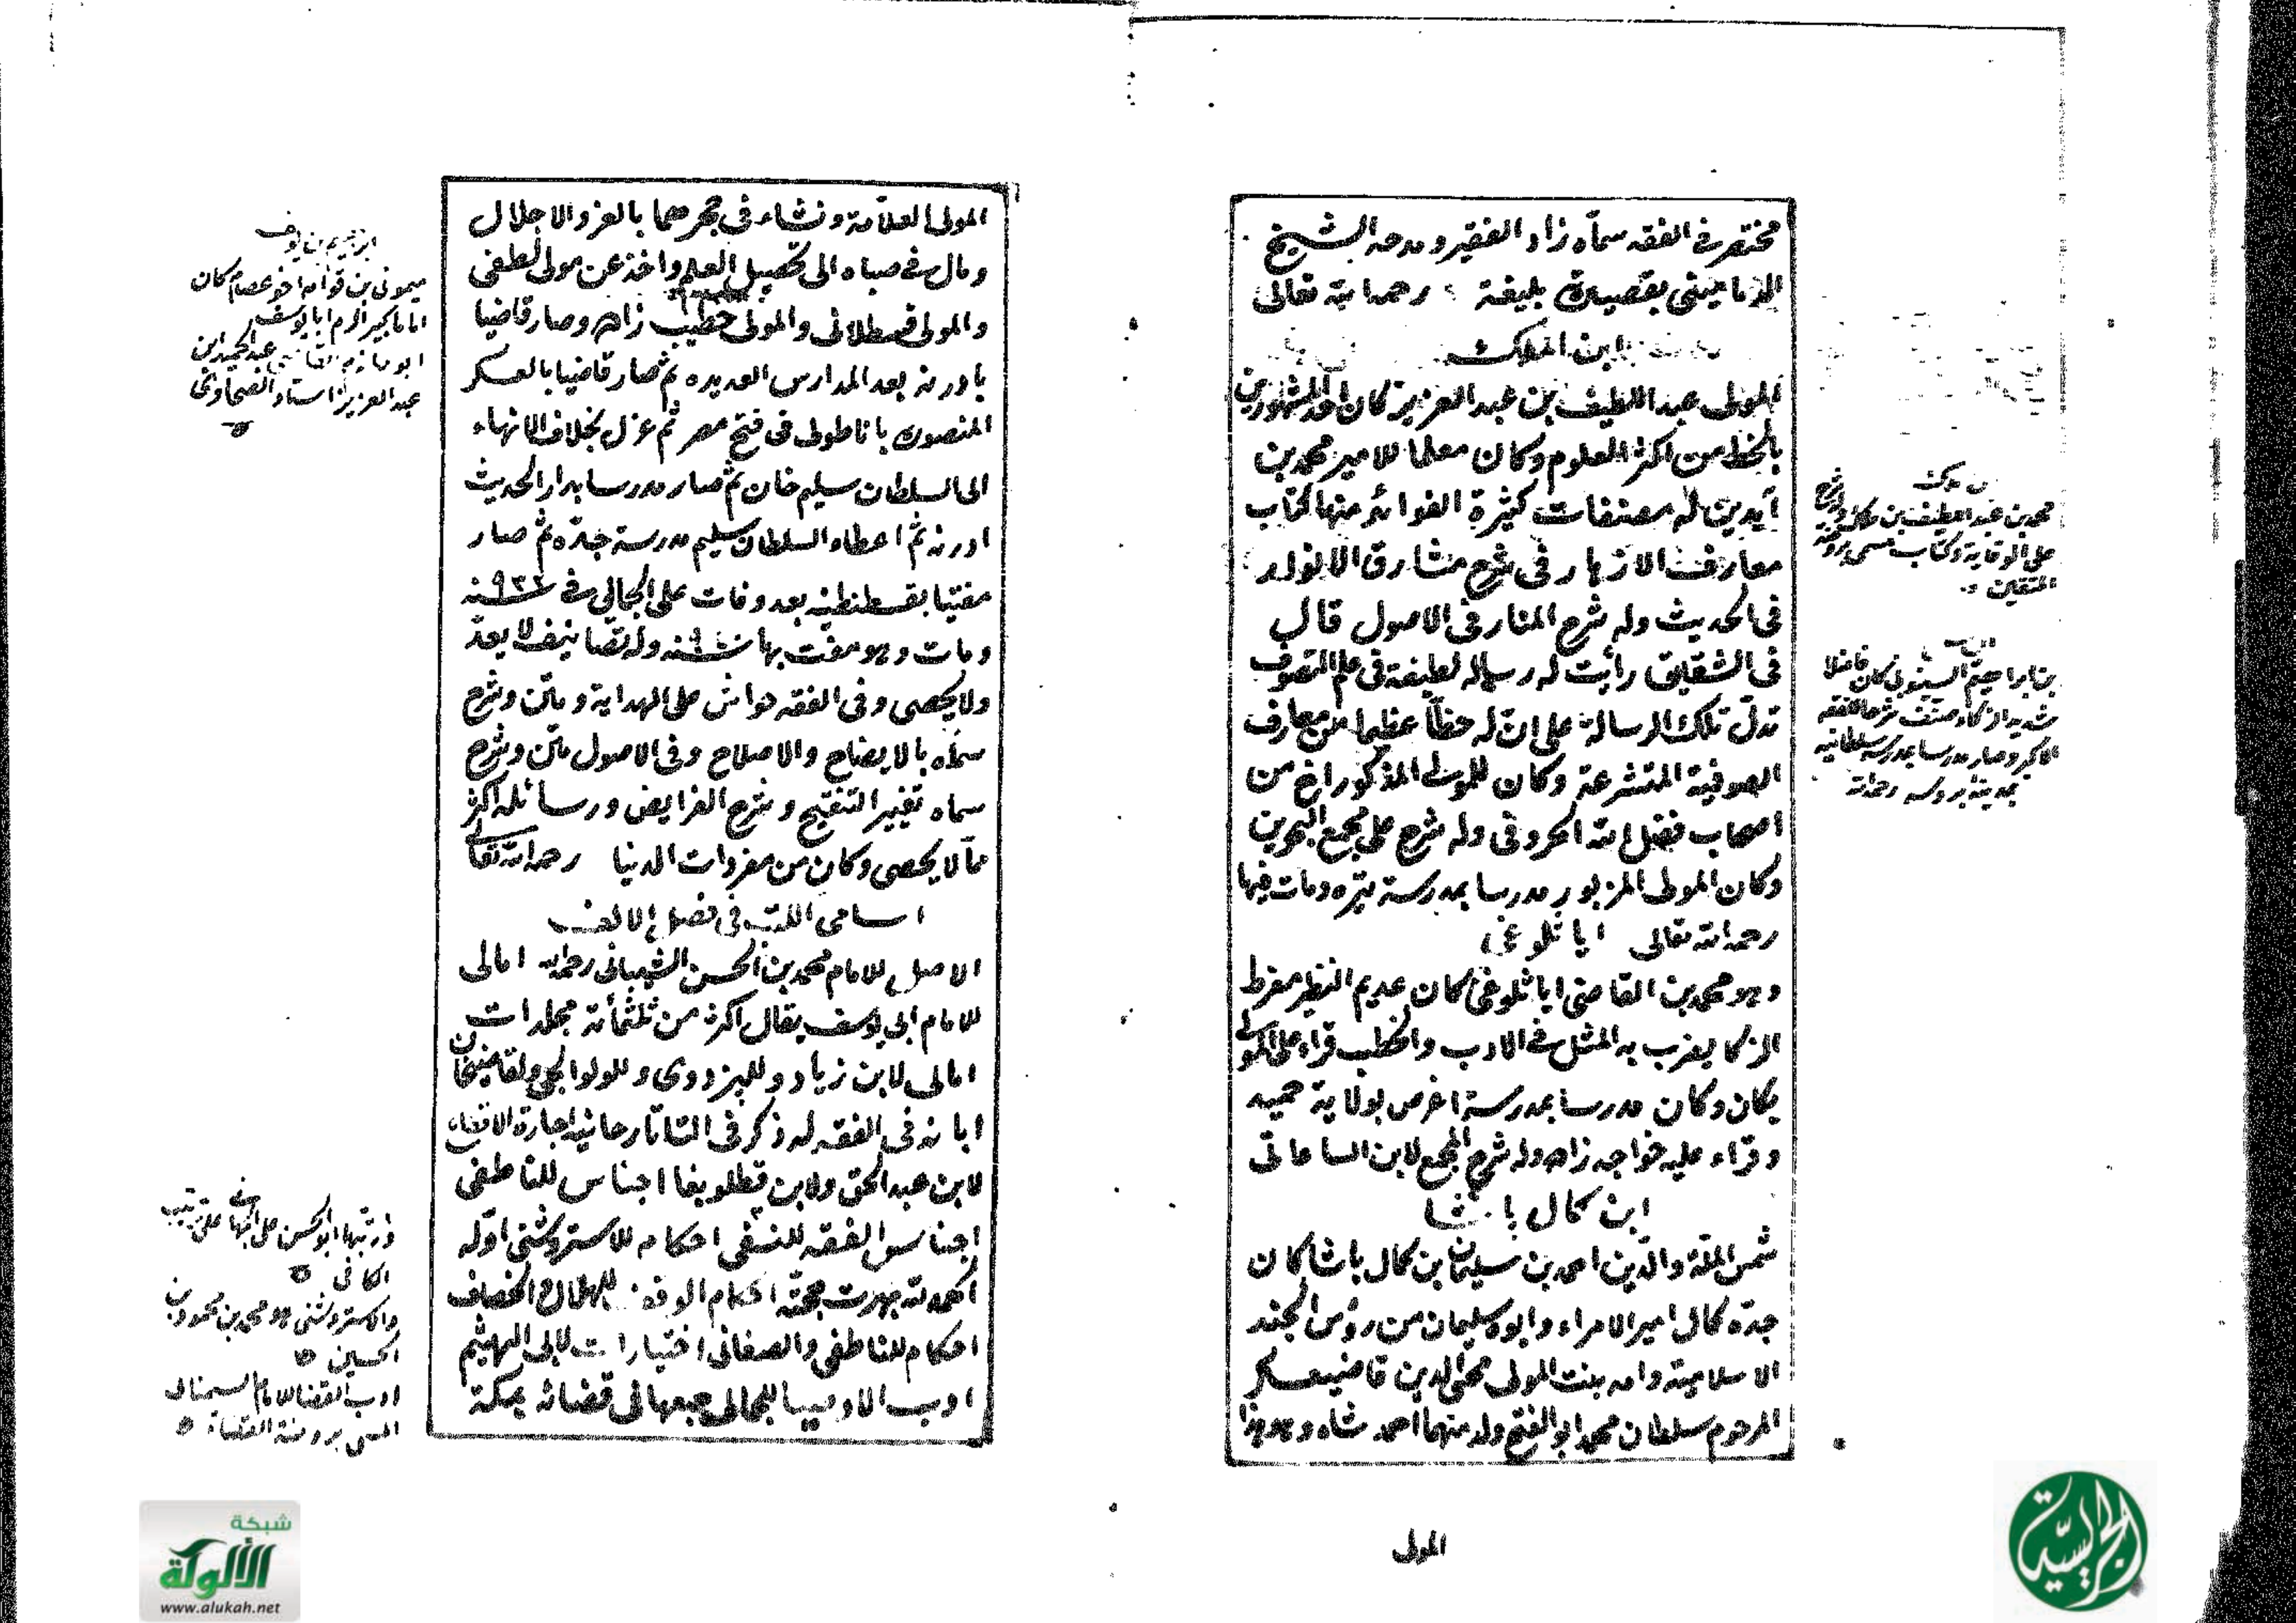 مختصر في الفقه سماه زاد الفقير ومدحه الشيخ
الدماميني بقصيدة بليغة رحمه الله تعالى
ابن الملك
المولى عبد اللطيف بن عبد العزيز كان احد المشهورين
بالحظ من اكثر العلوم وكان معلما للامير محمد بن
آيدين له مصنفات كثيرة الفوائد منها كتاب
معارف الازهار في شرح مشارق الانوار
في الحديث وله شرح المنار في الاصول قال
في الشقايق رأيت له رسالة لطيفة في علم التصوف
تدل تلك الرسالة على ان له حظا عظيما من معارف
الصوفية المتشرعة وكان للمولى المذكور اخ من
اصحاب فضل الله الحروفي وله شرح على مجمع البحرين
وكان المولى المزبور مدرسا بمدرسة تيره ومات فيها
رحمه الله تعالى اياثلوغي
وهو محمد بن القاضي اياثلوغي كان عديم النظير مفرط
الذكا يضرب به المثل في الادب والخطب قراء على المولى
يكان وكان مدرسا بمدرسة اغرص بولاية حميد
وقراء عليه خواجه زاده وله شرح المجمع لابن الساعاتي
ابن كمال باشا
شمس الملة والدين احمد بن سليمان بن كمال باشا كان
جده كمال امير الامراء وابوه سليمان من رؤس الجند
الاسلامية وامه بنت المولى محي الدين قاضيعسكر
المرحوم سلطان محمد ابو الفتح ولد منهما احمد شاه وهو هذا
المولى
بن ملك
محمد بن عبد اللطيف بن ملك وله شرح
على الوقاية وكتاب مسمى بروضة
المتقين
بن ابراهيم السينوبي كان فاضلا
شديد الذكاء صنف شرحا للفقه
الاكبر وصار مدرسا بمدرسة سلطانيه
بمدينة بروسه رحمه الله
المولى العلامة ونشاء في حجرهما بالعز والاجلال
ومال في صباه الى تحصيل العلم واخذ عن مولى لطفي
والمولى قسطلاني والمولى خطيب زاده وصار قاضيا
بادرنه بعد المدارس العديده ثم صار قاضيا بالعسكر
المنصورة باناطولى في فتح مصر ثم عزل بخلاف الانهاء
الى السلطان سليم خان ثم صار مدرسا بدار الحديث
ادرنه ثم اعطاه السلطان سليم مدرسة جده ثم صار
مفتيا بقسطنطنيه بعد وفات على الجمالي في سنة
ومات وهو مفت بها سنة وله تصانيف لا يعد
ولا يحصى وفي الفقه حواش على الهداية ومتن وشرح
سماه بالايضاح والاصلاح وفي الاصول متن وشرح
سماه تغيير التنقيح وشرح الفرايض ورسائله اكثر
مما لا يحصى وكان من مفردات الدنيا رحمه الله تعالى
اسامى الكتب في فصل الالف
الاصل للامام محمد بن الحسن الشيباني رحمه الله امالى
للامام ابي يوسف يقال اكثر من ثلثمأية مجلدات
امالى لابن زياد وللبزدوى وللولوالجي ولقاضيخان
ابانه في الفقه له ذكر في التاتارخانيه اجارة الاقطاع
لابن عبد الحق ولابن قطلوبغا اجناس للناطفي
اجناس الفقه للنسفي احكام للاستروشني اوله
الحمد لله بهرت حجته احكام الوقف للهلال الخصاف
احكام للناطفي والصغاني اختيارات لابي الهيثم
ادب الاوصيا للجمالي جمعها في قضائه بمكة
ابرهيم بن يوسف
ميمون بن قدامه اخو عصام كان
اماما كبيرا لزم ابا يوسف
ابو حازم القاضي عبد الحميد بن
عبد العزيز استاد الطحاوي
ورتبها ابو الحسن على
الكافي
والاستروشني هو محمد بن محمود بن
الحسين
ادب القضا للامام السمناني
المسمى بروضة القضاة
شبكة
الألوكة
www.alukah.net